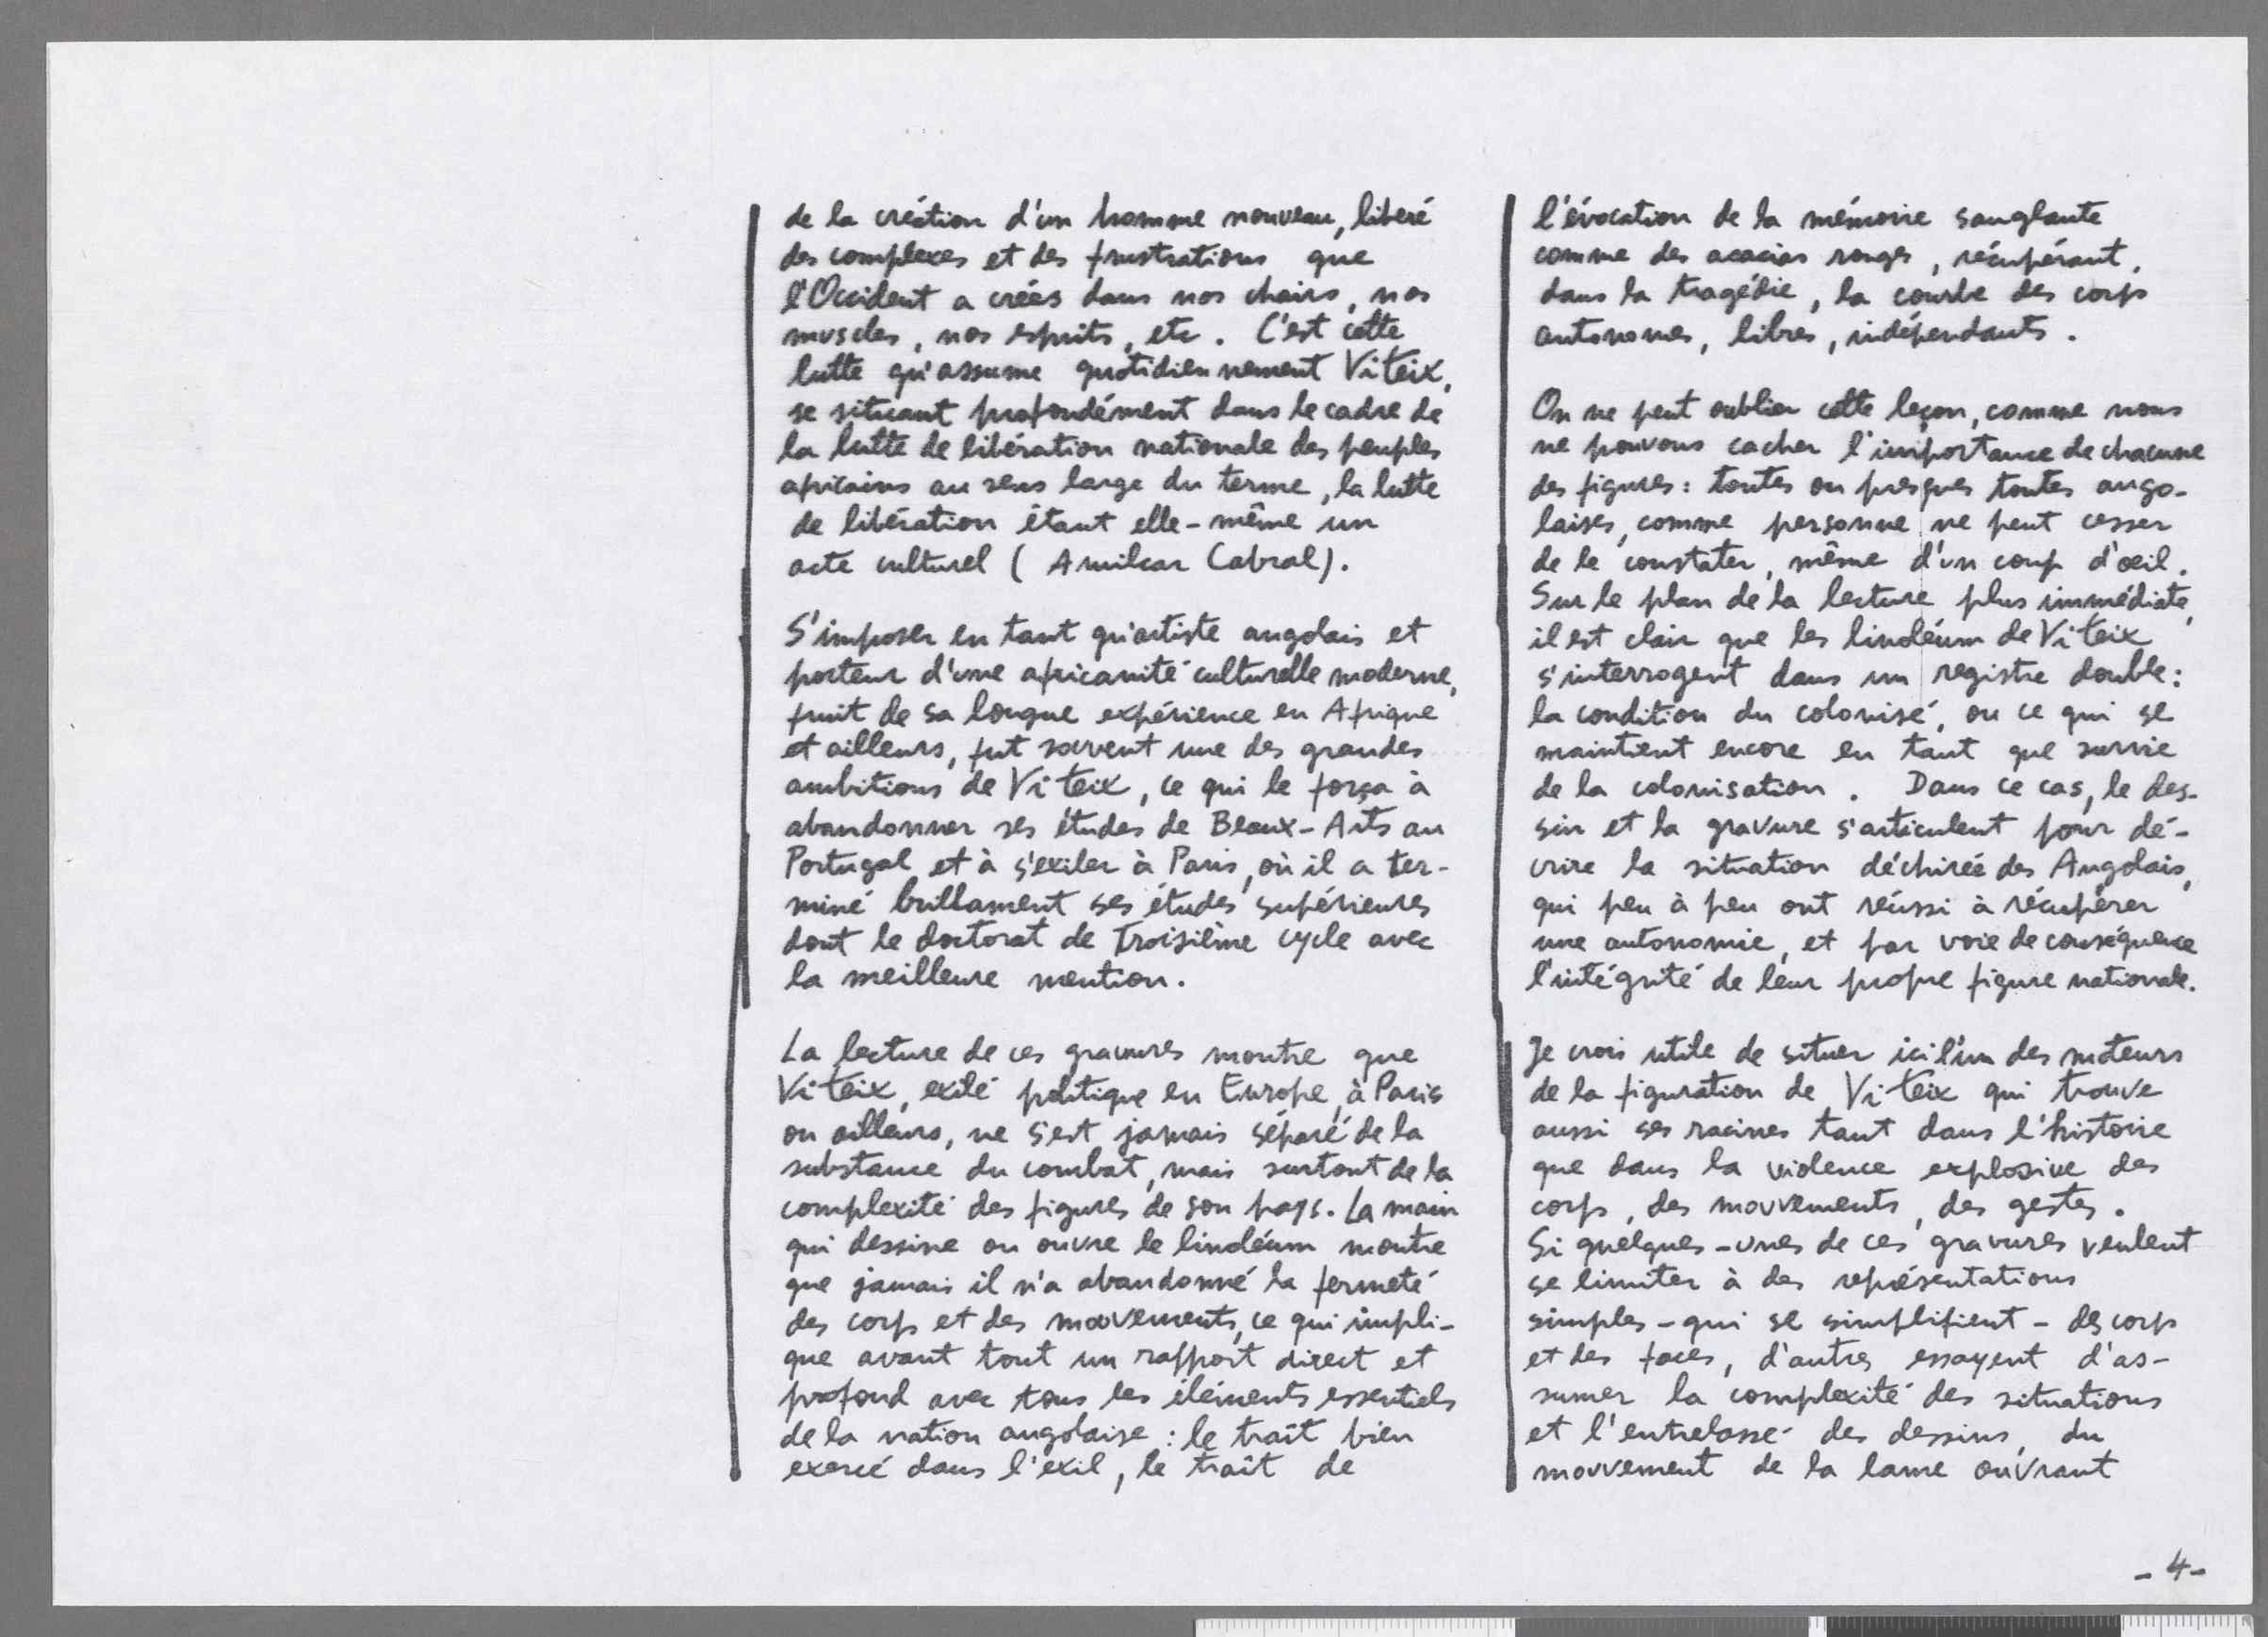 de la création d'un homme nouveau, liberé
des complexes et des frustrations que
l'Occident a crées dans nos chairs, nos
muscles, nos esprits, etc. C'est cette
lutte qu'assume quotidiennement Viteix,
se situant profondément dans le cadre de
la lutte de libération nationale des peuples
africains au sens large du terme, la lutte
de libération étant elle-même un
acte culturel (Amilcar Cabral).
S'imposer en tant qu'artiste angolais et
porteur d'une africanité culturelle moderne,
fruit de sa longue expérience en Afrique
et ailleurs, fut souvent une des grandes
ambitions de Viteix, ce qui le força à
abandonner ses études de Beaux-Arts au
Portugal et à s'exiler à Paris, où il a ter-
miné brillament ses études supérieures
dont le doctorat de troisième cycle avec
la meilleure mention.
La lecture de ces gravures montre que
Viteix, exilé politique en Europe, à Paris
ou ailleurs, ne s'est jamais séparé de la
substance du combat, mais surtout de la
complexité des figures de son pays. La main
qui dessine ou ouvre le linoléum montre
que jamais il n'a abandonné la fermeté
des corps et des mouvements, ce qui impli-
que avant tout un rapport direct et
profond avec tous les éléments essentiels
de la nation angolaise : le trait bien
exercé dans l'exil, le trait de
l'évocation de la mémoire sanglante
comme des acacias rouges, récupérant,
dans la tragédie, la courbe des corps
autonomes, libres, indépendants.
On ne peut oublier cette leçon, comme nous
ne pouvons cacher l'importance de chacune
des figures : toutes ou presques toutes ango-
laises, comme personne ne peut cesser
de le constater, même d'un coup d'oeil.
Sur le plan de la lecture plus immédiate,
il est clair que les linoléum de Viteix
s'interrogent dans un registre double :
la condition du colonisé, ou ce qui se
maintient encore en tant que survie
de la colonisation. Dans ce cas, le des-
sin et la gravure s'articulent pour dé-
crire la situation déchirée des Angolais,
qui peu à peu ont réussi à récupérer
une autonomie, et par voie de conséquence
l'intégrité de leur propre figure nationale.
Je crois utile de situer ici l'un des moteurs
de la figuration de Viteix qui trouve
aussi ses racines tant dans l'histoire
que dans la violence explosive des
corps, des mouvements, des gestes.
Si quelques-unes de ces gravures veulent
se limiter à des représentations
simples - qui se simplifient - des corps
et des faces, d'autres essayent d'as-
sumer la complexité des situations
et l'entrelassé des dessins, du
mouvement de la lame ouvrant
- 4 -